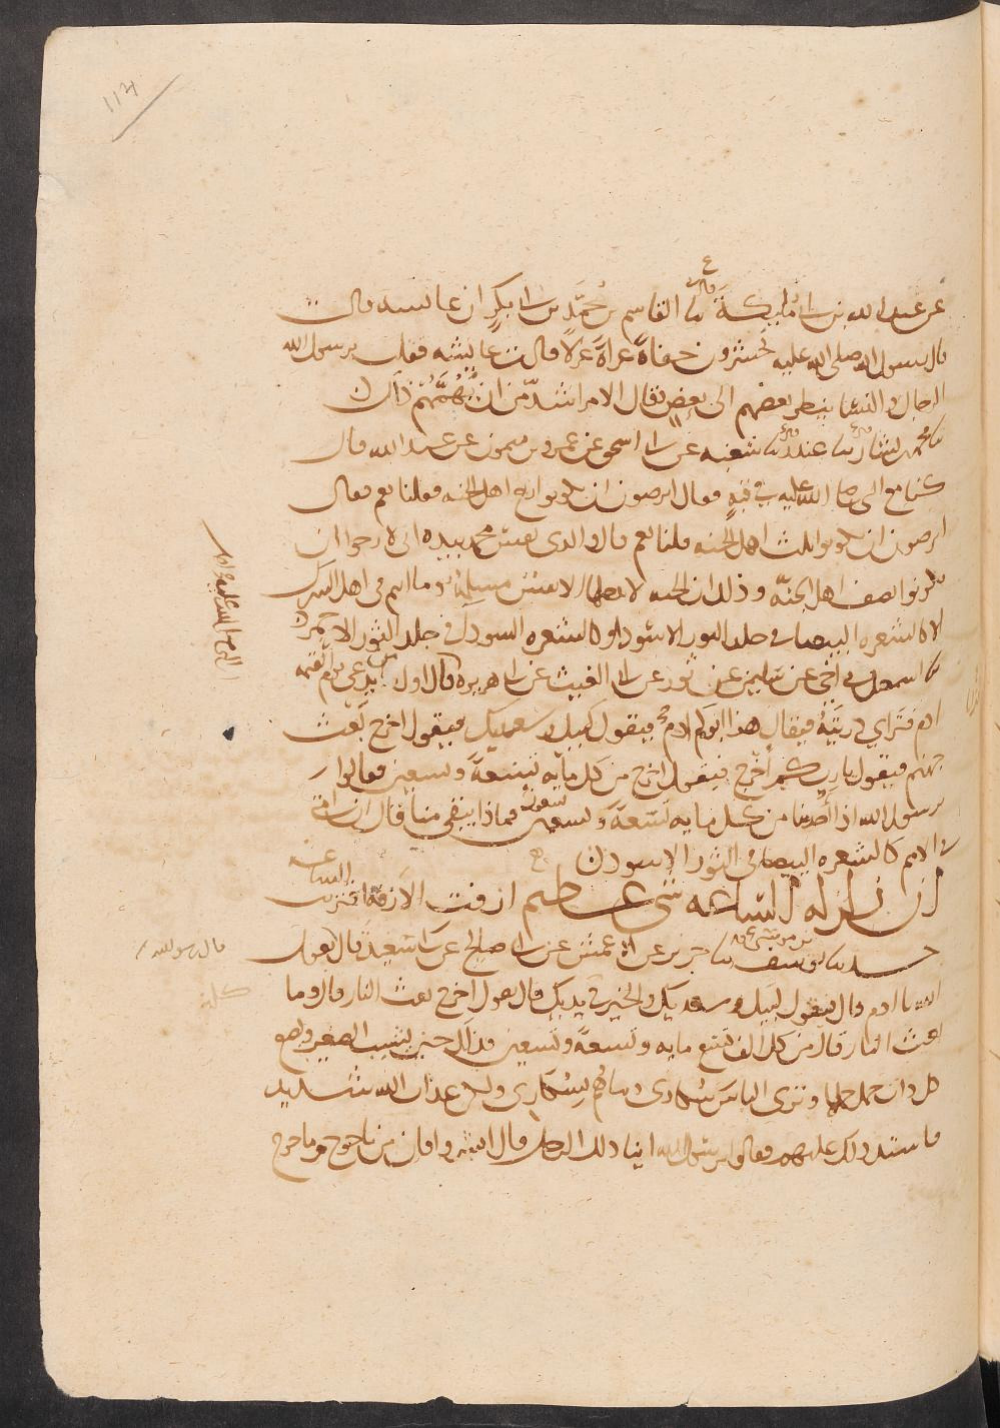 عن عبد الله بن ابى مليكة قال نا القاسم بن محمد بن ابى بكر ان عائشة قالت
قال رسول الله صلى الله عليه تحشرون حفاة عراة غرلا قالت عايشه فقلت يرسول الله
الرجال والنسا ينظر بعضهم الى بعض فقال الامر اشد من ان يهمهم ذاك
نا محمد بن بشار نا غندر نا شعبه عن ابى اسحق عن عمرو بن ميمون عن عبد الله قال
كنا مع النبى صلى الله عليه فى قبة فقال اترضون ان تكونوا ربع اهل الجنه قلنا نعم فقال
اترضون ان تكونوا ثلث اهل الجنه قلنا نعم قال والذى نفس محمد بيده انى لارجوا ان
تكونوا نصف اهل الجنة وذلك ان الجنه لا يدخلها الا نفس مسلمة وما انتم فى اهل الشرك
الا كالشعره البيضا فى جلد الثور الاسود او كالشعره السودا فى جلد الثور الاحمر
نا اسمعيل نى اخى عن سليمن عن ثور عن ابى الغيث عن ابى هريره قال اول من يدعى يوم القيمه
ادم فتراى ذريته فيقال هذا ابوكم ادم فيقول لبيك وسعديك فيقول اخرج بعث
جهنم فيقول يا رب كم اخرج فيقول اخرج من كل مايه تسعة وتسعين فقالوا
يرسول الله اذا اخذ منا من كل مايه تسعة وتسعون فماذا يبقى منا قال ان امتى
فى الامم كالشعره البيضا فى الثور الاسود
ان زلزله الساعه شى عظيم ازفت الازفة اقتربت الساعه
نا يوسف بن موسى نا جرير عن الاعمش عن ابى صالح عن ابى سعيد قال يقول
الله يا ادم قال فيقول لبيك وسعديك والخير فى يديك قال يقول اخرج بعث النار قال وما
بعث النار قال من كل الف تسع مايه وتسعة وتسعين فذاك حين يشيب الصغير وتضع
كل ذات حمل حملها وترى الناس سكارى وما هم بسكارى ولكن عذاب الله شديد
فاشتد ذلك عليهم فقالوا يرسول الله اينا ذلك الرجل قال ابشروا فان من ياجوج وماجوج
النبى صلى الله عليه وسلم
قال رسول الله